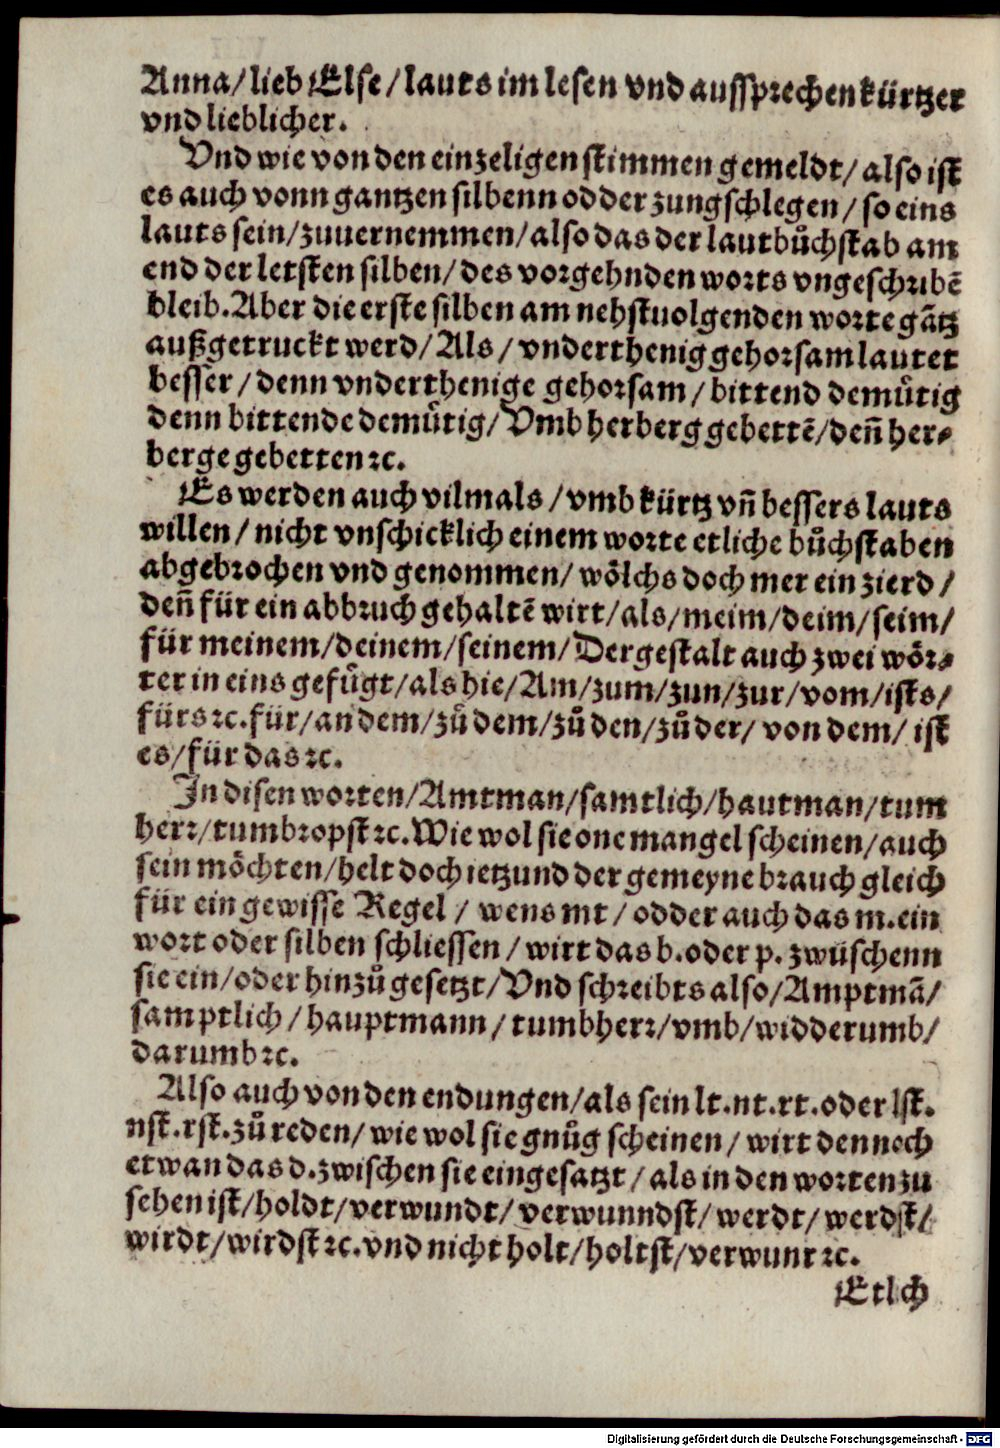 Anna/lieb Else/lauts im lesen vnd aussprechen kürtzer
vnd lieblicher.
Vnd wie von den einzeligen stimmen gemeldt/ also ist
es auch vonn gantzen silbenn odder zungschlegen/ so eins
lauts sein/zuuernemmen/also das der lautbůchstab am
end der letsten silben/ des vorgehnden worts vngeschribẽ
bleib. Aber die erste silben am nehstuolgenden worte gãtz
außgetruckt werd/ Als/ vnderthenig gehorsam lautet
besser/ denn vnderthenige gehorsam/ bittend demütig
denn bittende demütig/ Vmb herberg gebettẽ/deñ her⸗
berge gebetten ꝛc.
Es werden auch vilmals/vmb kürtz vñ bessers lauts
willen/ nicht vnschicklich einem worte etliche bůchstaben
abgebrochen vnd genommen/ wölchs doch mer ein zierd/
deñ für ein abbruch gehaltẽ wirt/als/meim/deim/seim/
für meinem/deinem/seinem/ Dergestalt auch zwei wör⸗
ter in eins gefügt/als hie/Am/zum/zun/zur/vom/ists/
fürs ꝛc. für/an dem/zů dem/zů den/zů der/ von dem/ ist
es/für das ꝛc.
In disen worten/Amtman/samtlich/hautman/tum
herr/tumbropst ꝛc. Wie wol sie one mangel scheinen/auch
sein möchten/helt doch ietzund der gemeyne brauch gleich
für ein gewisse Regel/ wens mt/ odder auch das m. ein
wort oder silben schliessen/ wirt das b. oder p. zwüschenn
sie ein/oder hinzů gesetzt/Vnd schreibts also/Amptmã/
samptlich/ hauptmann/ tumbherr/vmb/widderumb/
darumb ꝛc.
Also auch von den endungen/als sein lt. nt. rt. oder lst.
nst. rst. zů reden/ wie wol sie gnůg scheinen/ wirt dennoch
etwan das d. zwischen sie eingesatzt/ als in den worten zu
sehen ist/holdt/verwundt/ verwunndst/ werdt/ werdst/
wirdt/wirdst ꝛc. vnd nicht holt/holtst/verwunt ꝛc.
Etlch
Digitalisierung gefördert durch die Deutsche Forschungsgemeinschaft - DFG